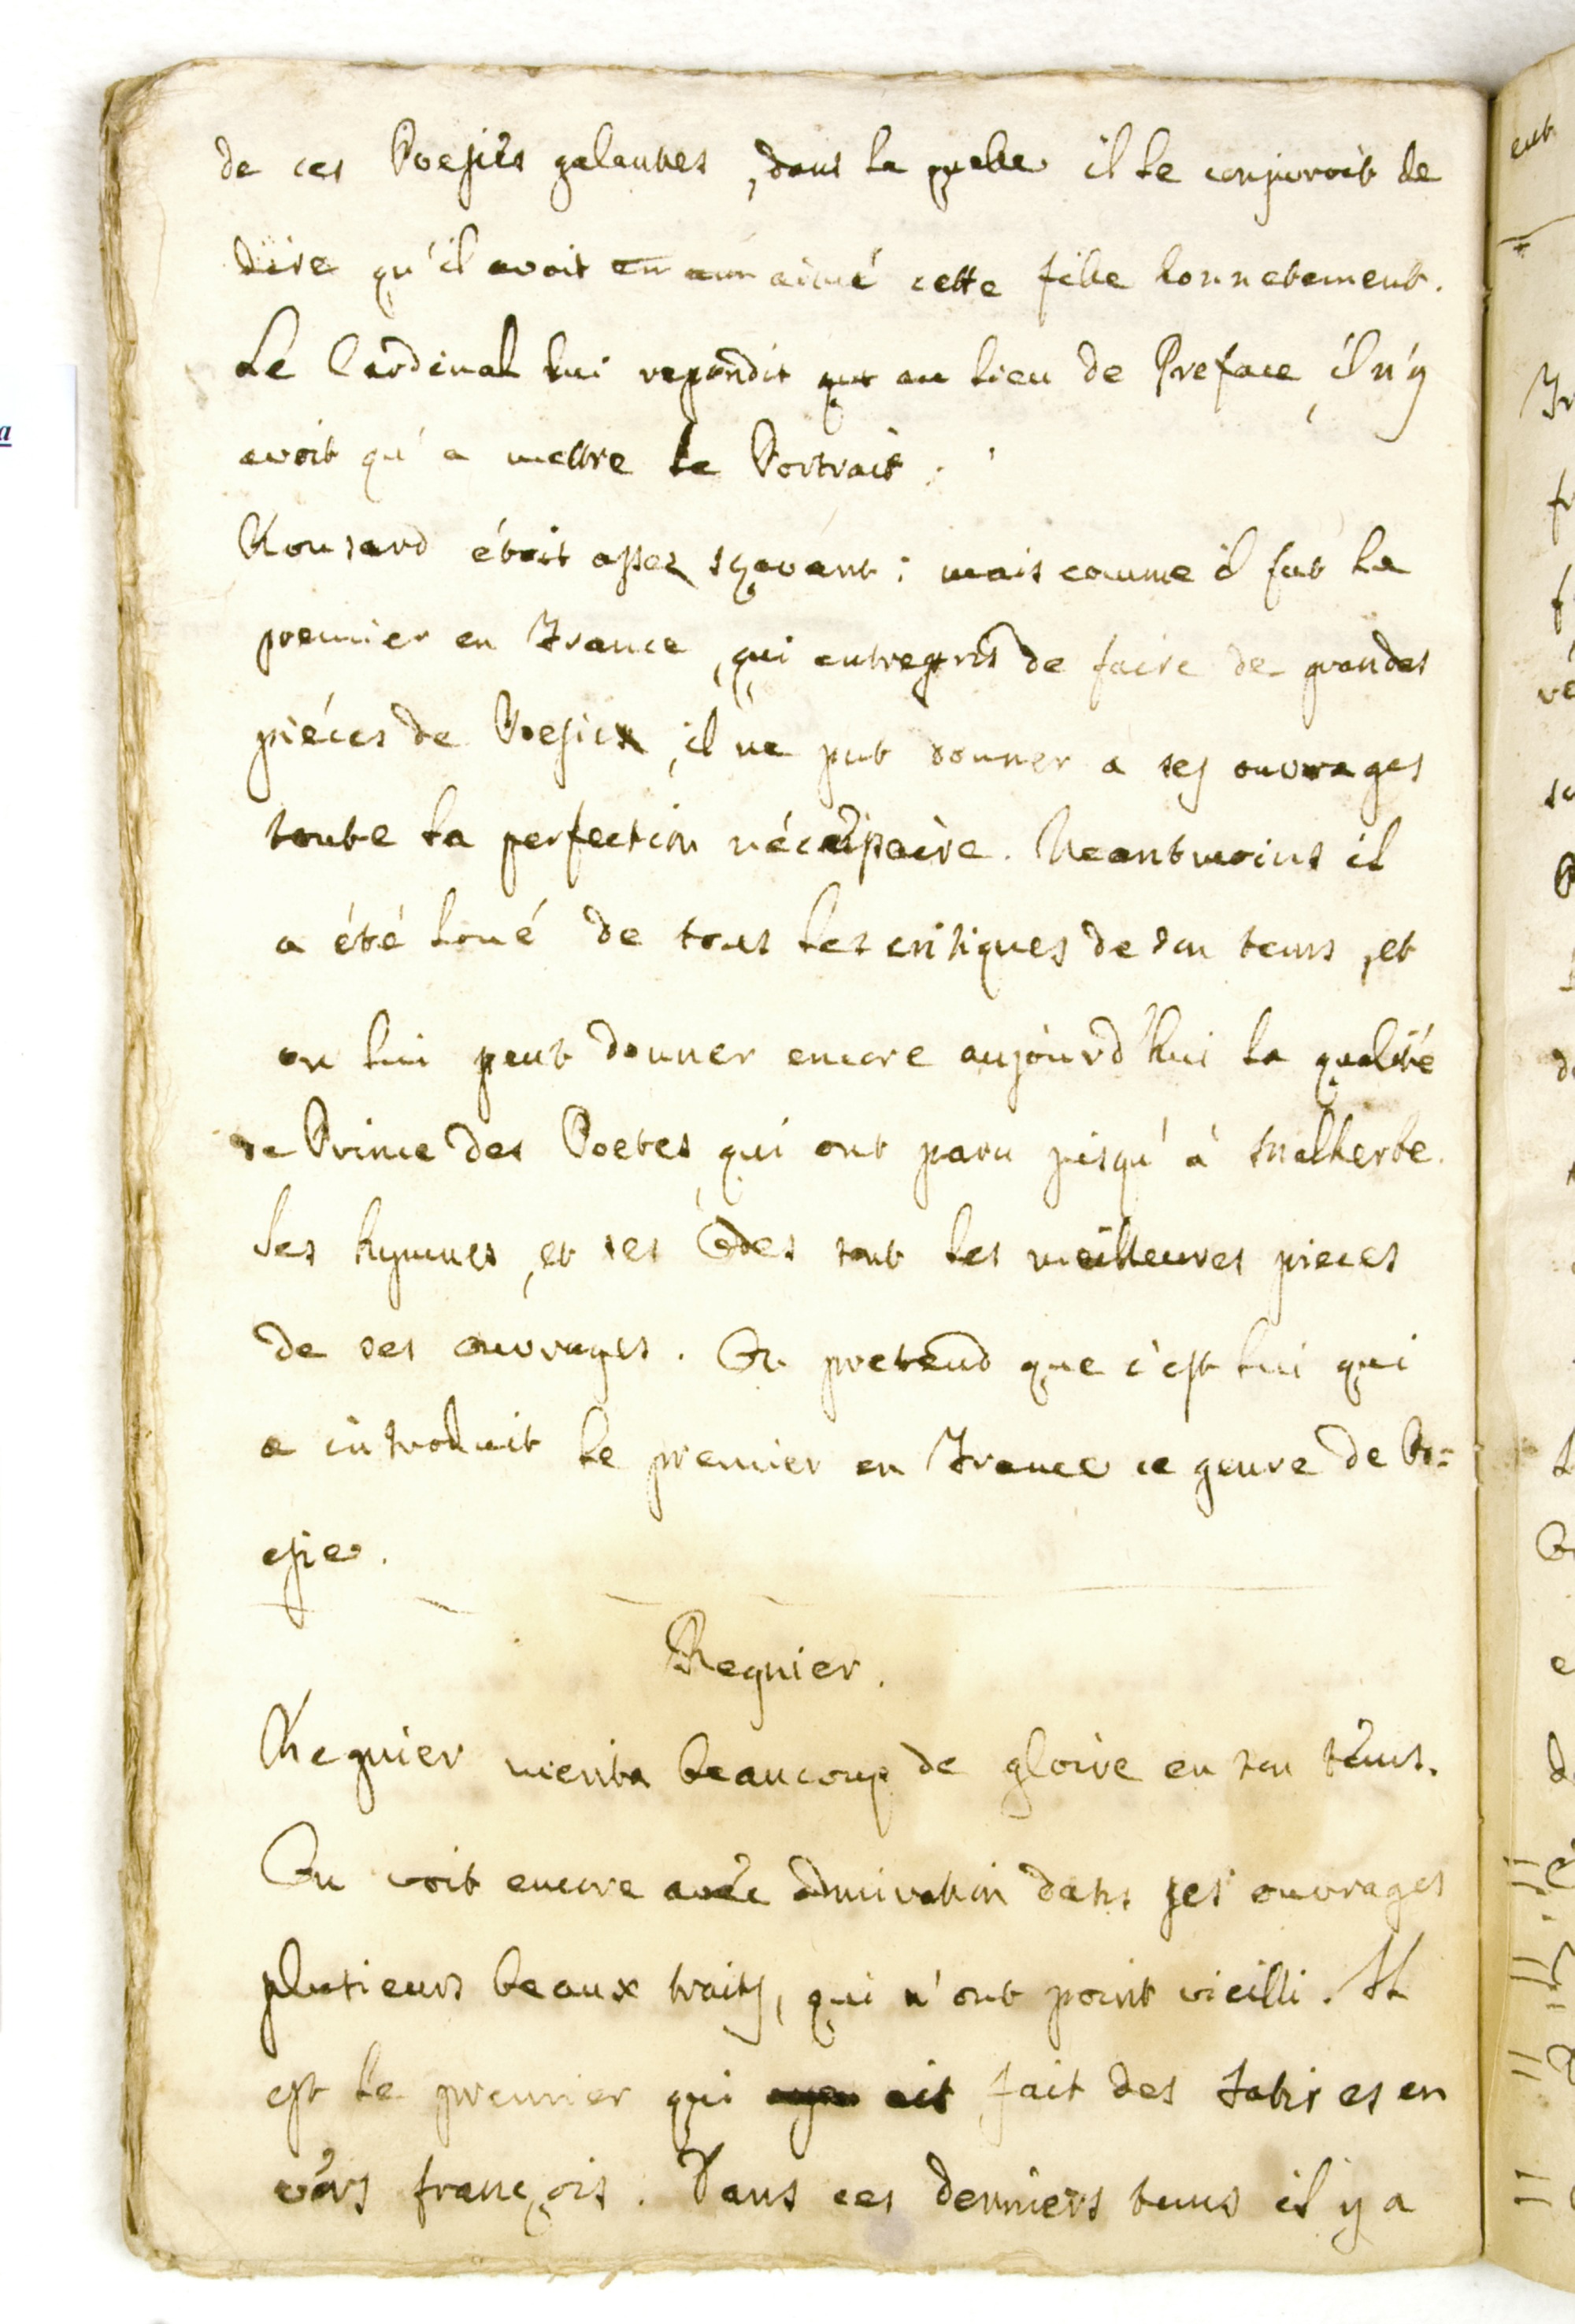 de ces Poesies galantes, dans la quelle il le conjuroit de
dire qu'il avoit aimé cette fille honnetement.
Le Cardinal lui repondit que au lieu de Preface, il n'y
avoit qu'a mettre le Portrait.
Ronsard étoit assez sçavant; mais comme il fut le
premier en France, qui entreprit de faire de grandes
piéces de Poesie, il ne put donner a ses ouvrages
toute la perfection nécessaire. Neantmoins il
a été loué de tous les critiques de son tems, et
on lui peut donner encore aujourd'hui la qualité
de Prince des Poetes, qui ont paru jusqu'à Malherbe.
Ses hymnes, et ses Odes sont les meilleures pieces
de ses ouvrages. On pretend que c'est lui qui
a introduit le premier en France ce genre de Po=
esie.
Regnier.
Regnier merita beaucoup de gloire en son tems.
On voit encore avec admiration dans ses ouvrages
plusieurs beaux traits, qui n'ont point vieilli. Il
est le premier qui ait fait des Satires en
vers françois. Dans ces derniers tems il y a